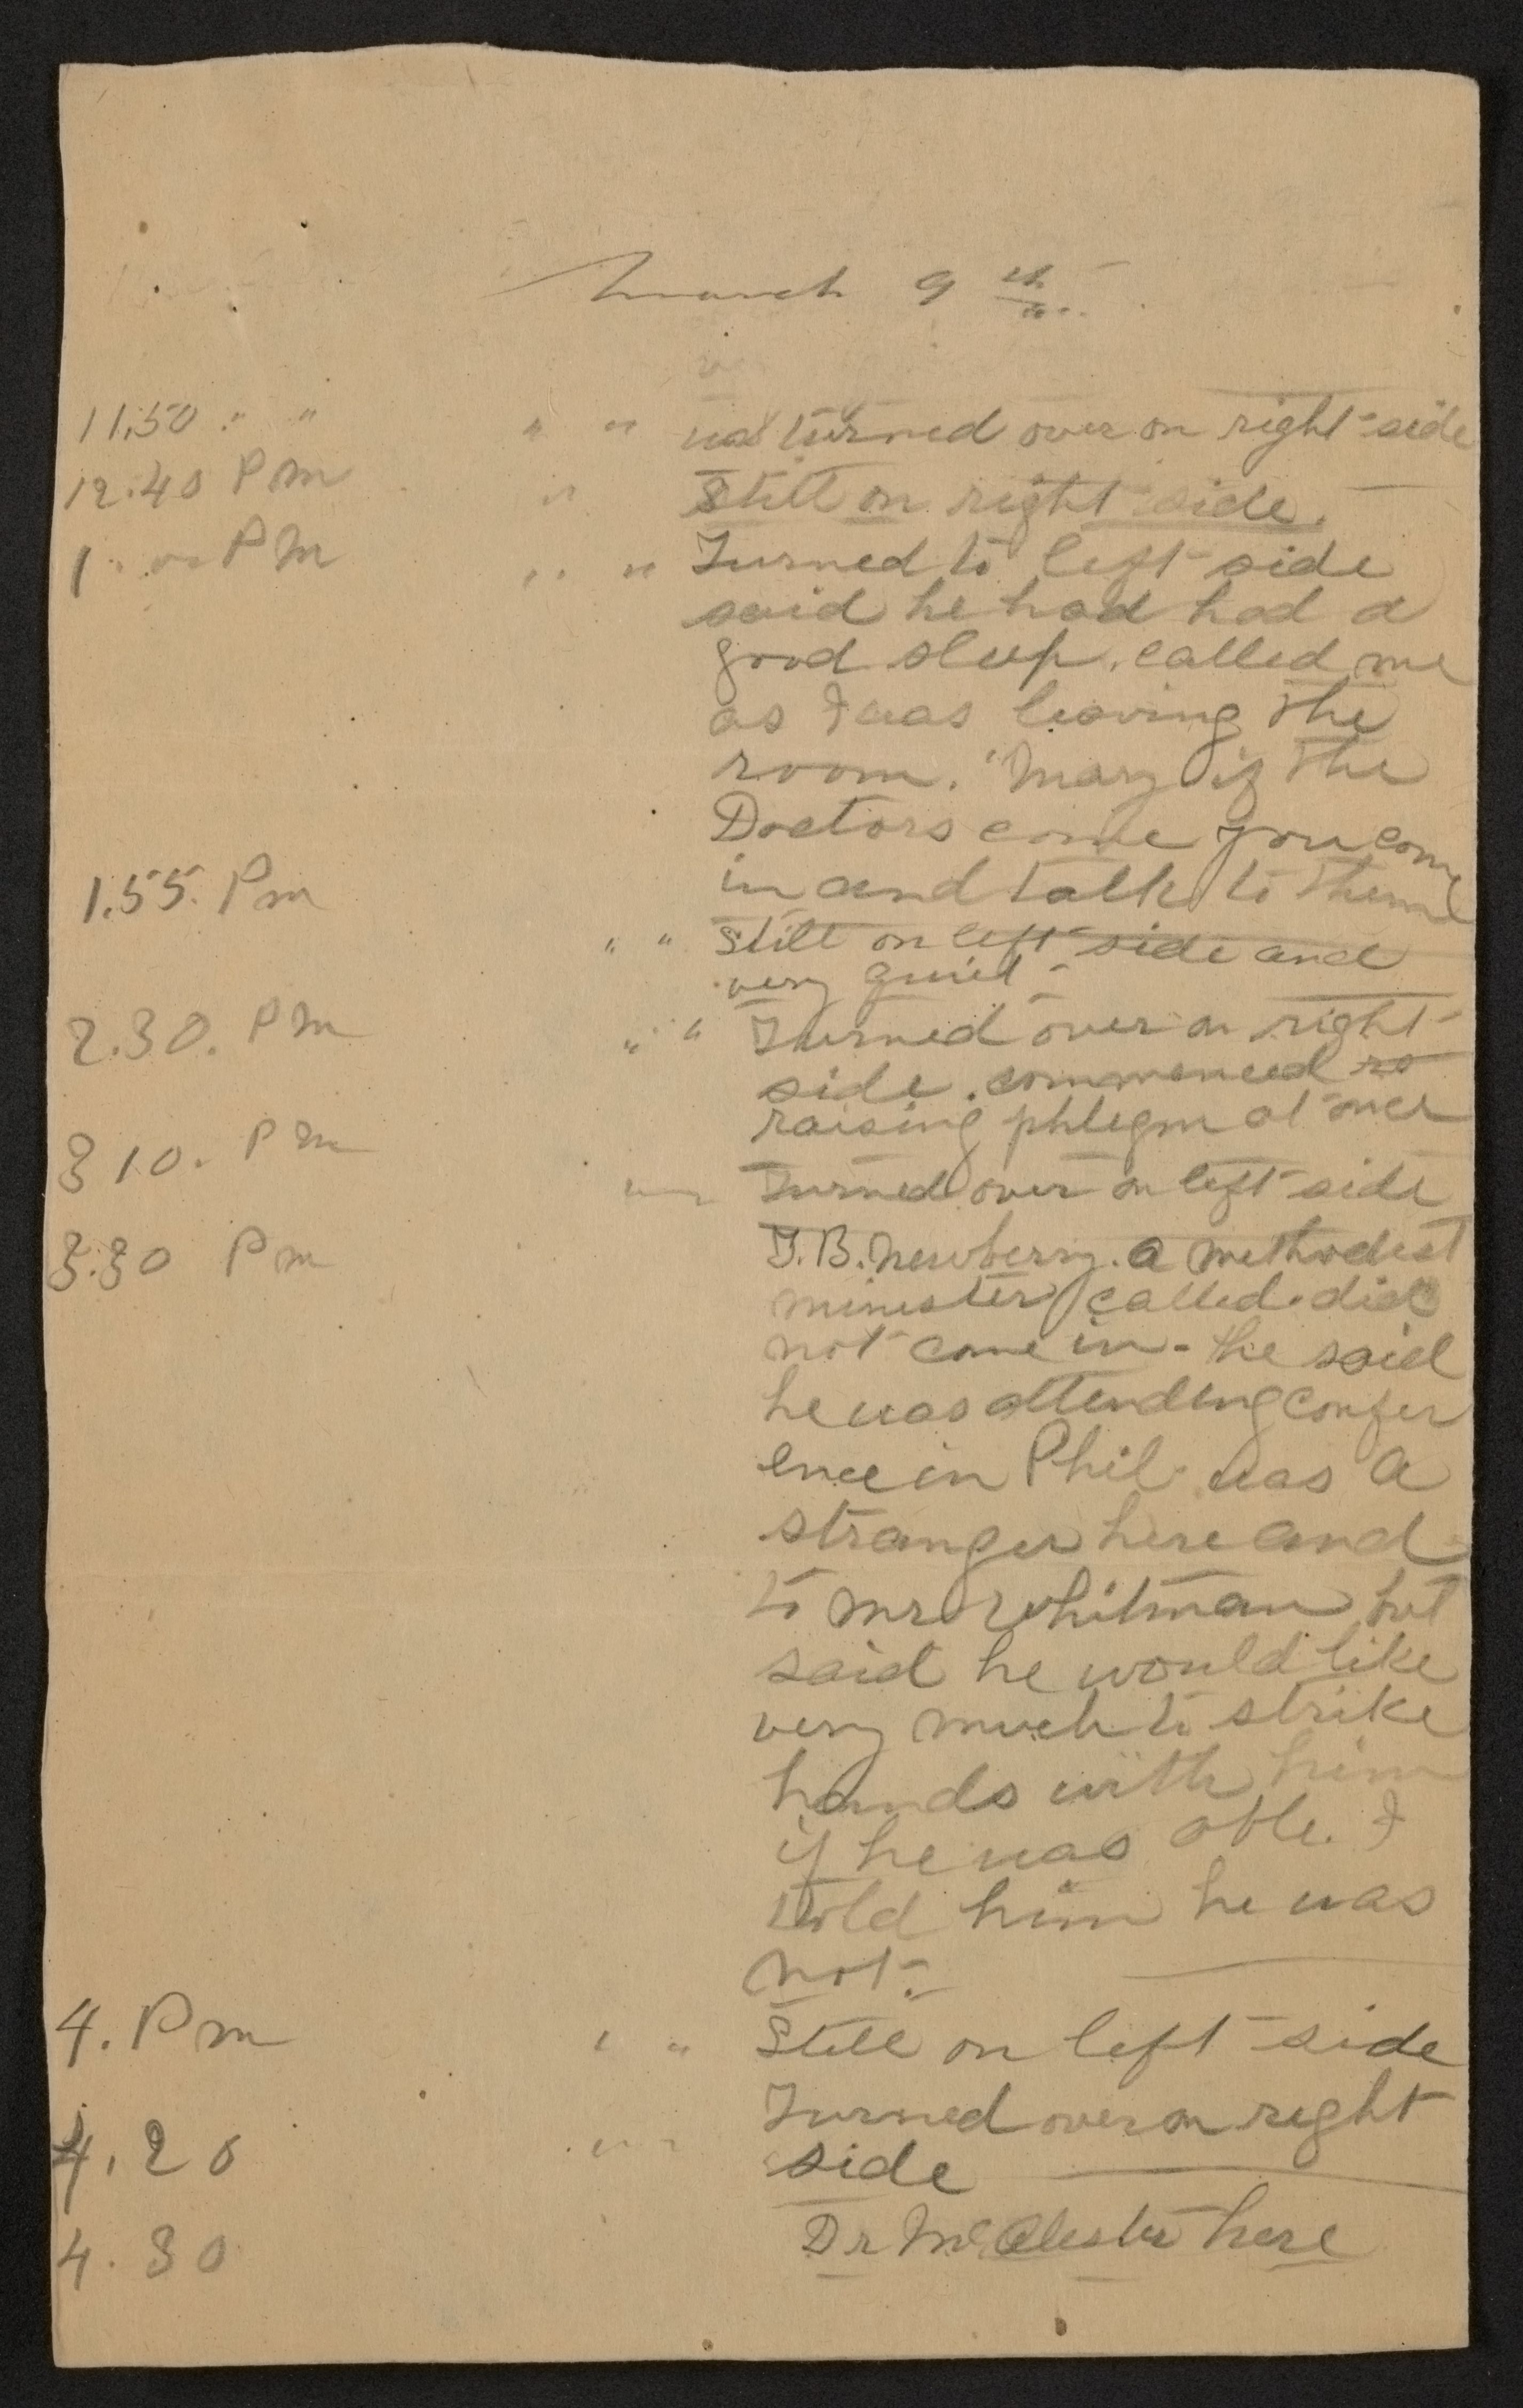 March 9th
11.50 " " " " was turned over on right side
12.40 Pm " Still on right side.
1 Pm " " Turned to left side
said he had had a
good sleep. called me
as I was leaving the
room. "Mary if the
Doctors come you come
in and talk to them
1.55. Pm
" " Still on left side and
very quiet -
2.30. Pm " " Turned over on right
side. commenced ra
raising phlegm at once
3 10. Pm
" " Turned over on left side
3.30 Pm J.B. Newberry. a methodest
minester called. did
not come in - he said
he was attending confer
ence in Phil. was a
stranger here and
to Mr Whitman but
said he would like
very much to strike
hands with him
if he was able. I
told him he was
not.
4. Pm " " Still on left side
4.20 " " Turned over on right
side
4.30 Dr McAlester here